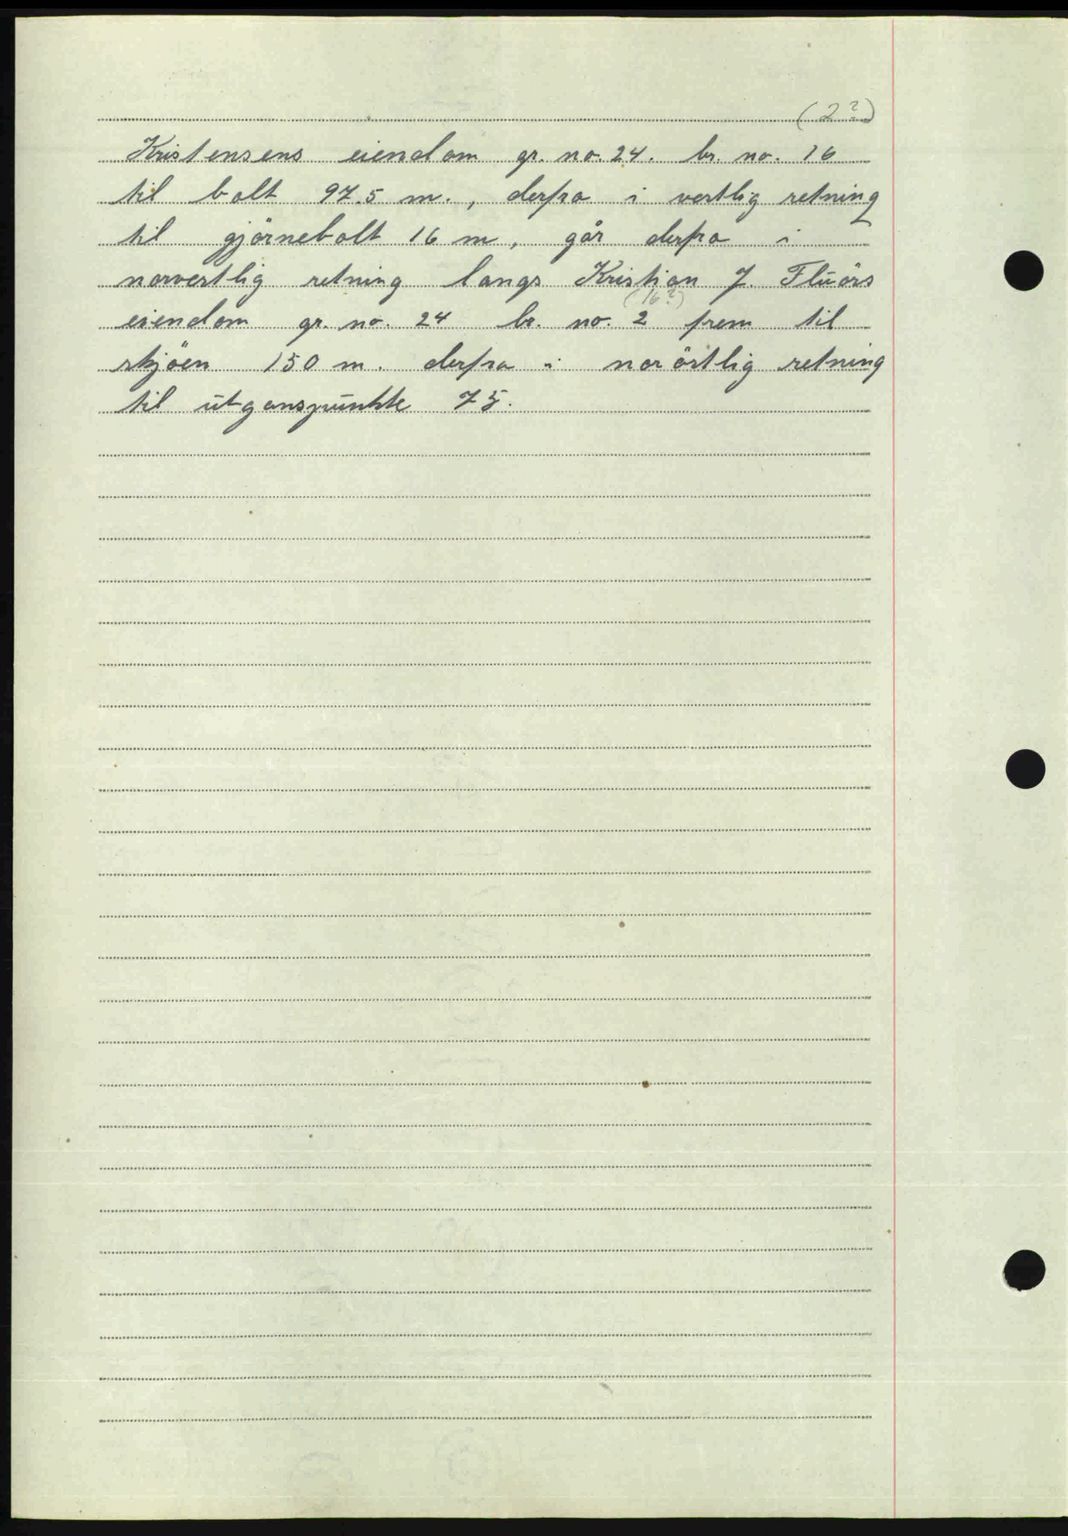 (2?)
Kristensens eiendom gr. no. 24. br. no. 16
til bolt 97.5 m., derfra i vestlig retning
til gjörnebolt 16 m, går derfra i
norvestlig retning langs Kristian J. Fluörs
(16?)
eiendom gr. no. 24 br. no. 2 frem til
skjöen 150 m. derfra i noröstlig retning
til utganspunkte 75.